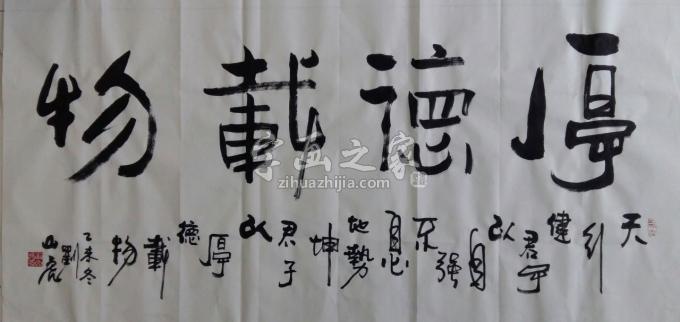 厚德載物
天行健君子以自强不息地勢坤君子以厚德載物
乙未冬劉山虎
字画之家
zihuazhijia.com